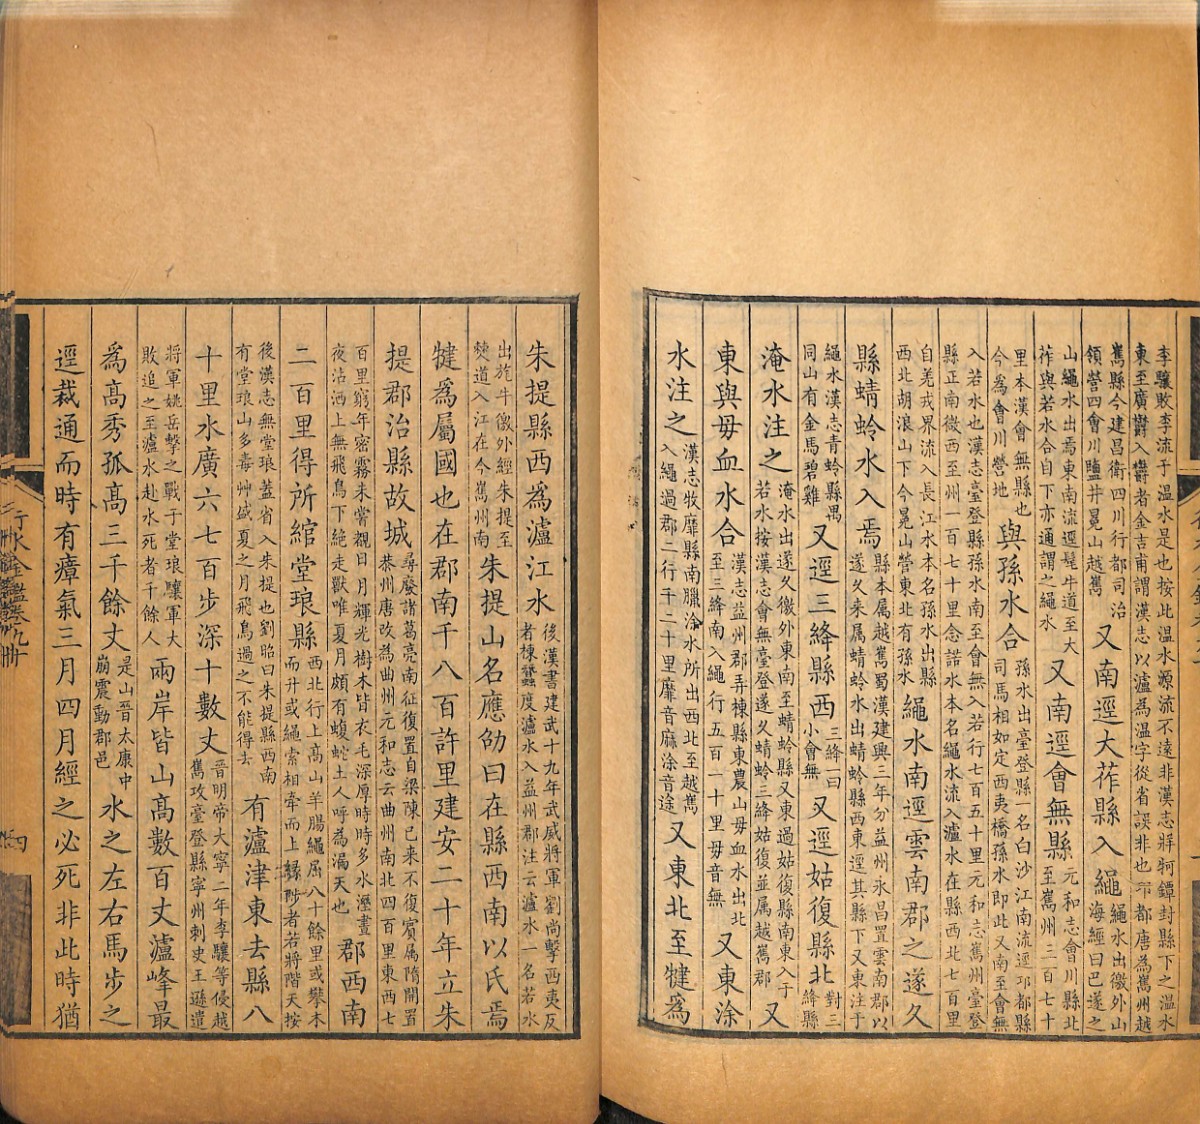 李驤敗李流于温水是也按此温水源流不遠非漢志牂牁鐔封縣下之温水
東至廣鬱入鬱者金吉甫謂漢志以瀘為温字從省誤非也邛都唐為巂州越
巂縣今建昌衛四川行都司治
領營四會川鹽井冕山越巂
又南逕大莋縣入繩
繩水出徼外山
海經曰巴遂之
山繩水出焉東南流逕髦牛道至大
莋與若水合自下亦通謂之繩水
又南逕會無縣
元和志會川縣北
至巂州三百七十
里本漢會無縣也
今為會川營地
與孫水合
孫水出臺登縣一名白沙江南流逕邛都縣
司馬相如定西夷橋孫水即此又南至會無
入若水也漢志臺登縣孫水南至會無入若行七百五十里元和志巂州臺登
縣正南微西至州一百七十里念諾水本名繩水流入瀘水在縣西北七百里
自羌戎界流入長江水本名孫水出縣
西北胡浪山下今冕山營東北有孫水
繩水南逕雲南郡之遂久
縣蜻蛉水入焉
縣本属越巂蜀漢建興三年分益州永昌置雲南郡以
遂久来属蜻蛉水出蜻蛉縣西東逕其縣下又東注于
繩水漢志青蛉縣禺
同山有金馬碧雞
又逕三絳縣西
三絳一曰
小會無
又逕姑復縣北
對三
絳縣
淹水注之
淹水出遂久徼外東南至蜻蛉縣又東過姑復縣南東入于
若水按漢志會無臺登遂久蜻蛉三絳姑復並属越巂郡
又
東與毋血水合
漢志益州郡弄棟縣東農山毋血水出北
至三絳南入繩行五百一十里毋音無
又東涂
水注之
漢志牧靡縣南臘涂水所出西北至越巂
入繩過郡二行千二十里靡音麻涂音途
又東北至犍為
朱提縣西為瀘江水
後漢書建武十九年武威將軍劉尚擊西夷反
者棟蠶度瀘水入益州郡注云瀘水一名若水
出旄牛徼外經朱提至
僰道入江在今巂州南
朱提山名應劭曰在縣西南以氏焉
犍為屬國也在郡南千八百許里建安二十年立朱
提郡治縣故城
尋廢諸葛亮南征復置自梁陳已来不復賓属隋開置
恭州唐改為曲州元和志云曲州南北四百里東西七
百里窮年密霧未嘗覩日月輝光樹木皆衣毛深厚時時多水瀝晝
夜沾洒上無飛鳥下絶走獸唯夏月頗有蝮蛇土人呼為漏天也
郡西南
二百里得所綰堂琅縣
西北行上高山羊腸繩屈八十餘里或攀木
而升或繩索相牽而上縁陟者若將階天按
後漢志無堂琅蓋省入朱提也劉昭曰朱提縣西南
有堂琅山多毒艸盛夏之月飛鳥過之不能得去
有瀘津東去縣八
十里水廣六七百步深十數丈
晉明帝大寧二年李驤等侵越
巂攻臺登縣寧州刺史王遜遣
將軍姚岳擊之戰于堂琅驤軍大
敗追之至瀘水赴水死者千餘人
兩岸皆山高數百丈瀘峰最
為高秀孤高三千餘丈
是山晉太康中
崩震動郡邑
水之左右馬步之
逕裁通而時有瘴氣三月四月經之必死非此時猶